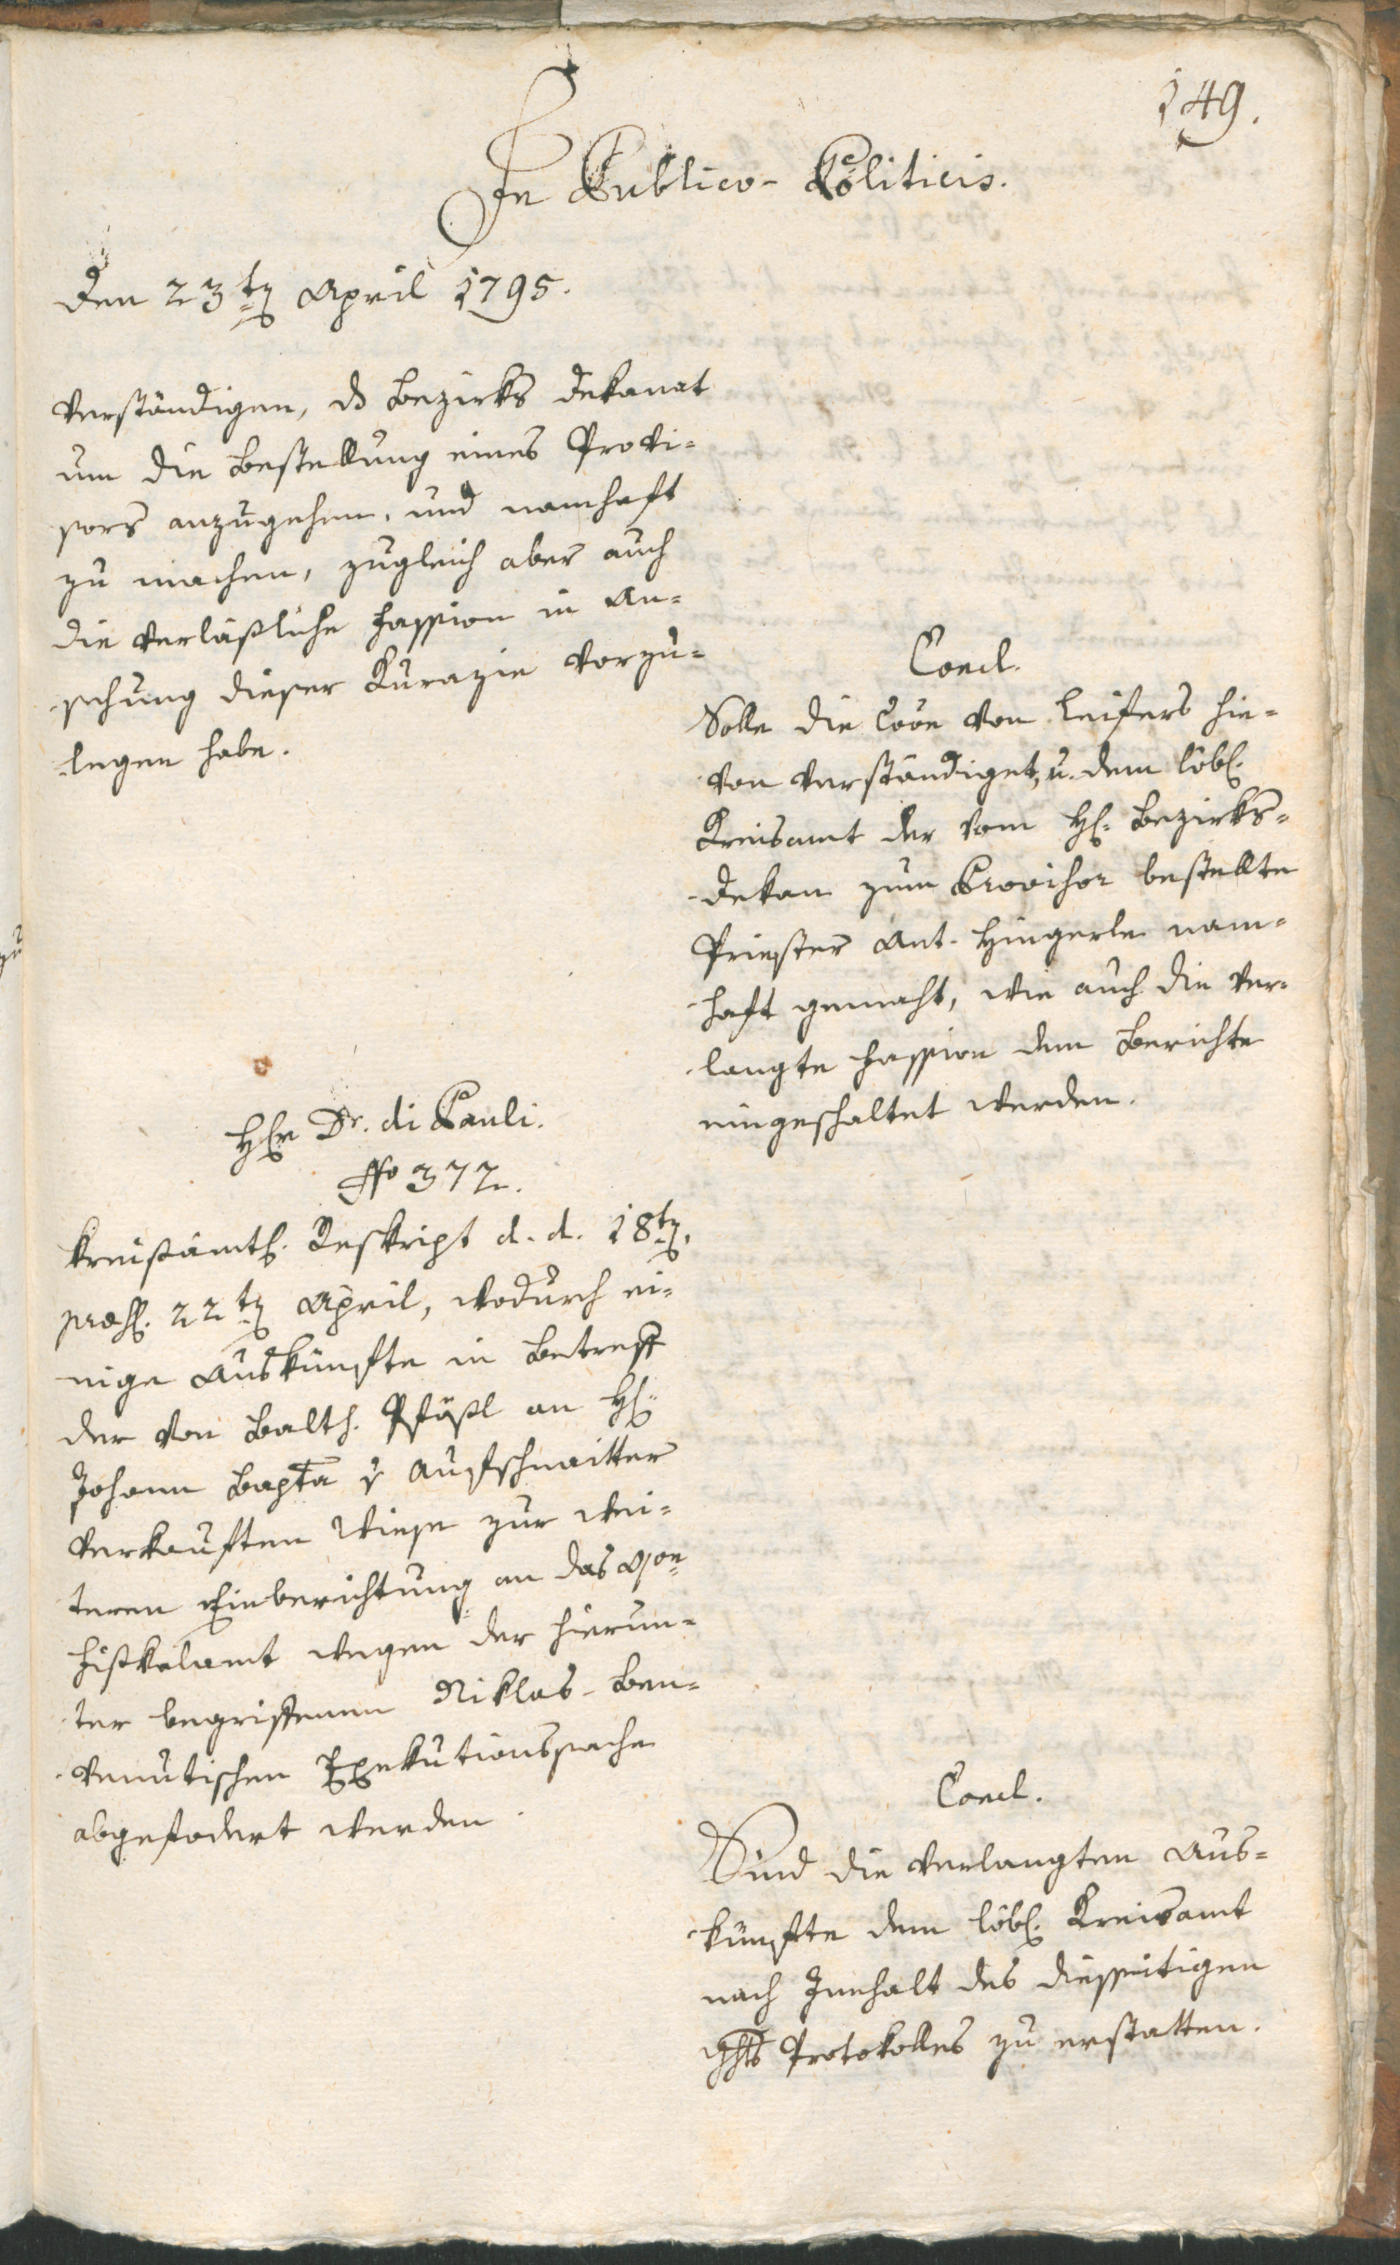 149.
In Publico-Politicis.
Den 23t April 1795.
verständigen, ds Bezirks Dekanat
um die Bestellung eines Provi-
sors anzugehen, und namhaft
zu machen, zugleich aber auch
die verläßliche Fassion in An-
sehung dieser Kurazie vorzu-
legen habe.
Concl.
Solle die Coôe von Leifers hie-
von verständiget, u. dem löbl.
Kreisamt der vom H. Bezirks-
dekan zum Provisor bestellte
Priester Ant. Hingerle nam-
haft gemacht, wie auch die ver-
langte Fassion dem Berichte
eingeschaltet werden.
Hr Dr. di Pauli.
No 377.
Kreisämtl. Reskript d. d. 18t,
præs. 22t April, wodurch ei-
nige Auskünfte in Betreff
der von Balth. Pfößl an H.
Johann Bapta v Aufschnaitter
verkauften Wiese zur wei-
teren Einberichtung an das
Fiskalamt wegen der hierun-
ter begriffenen Niklas-Ben-
venutischen Exekutionssache
abgefodert werden.
Concl.
Sind die verlangten Aus-
künfte dem löbl. Kreisamt
nach Innhalt des diesseitigen
Protokolles zu erstatten.